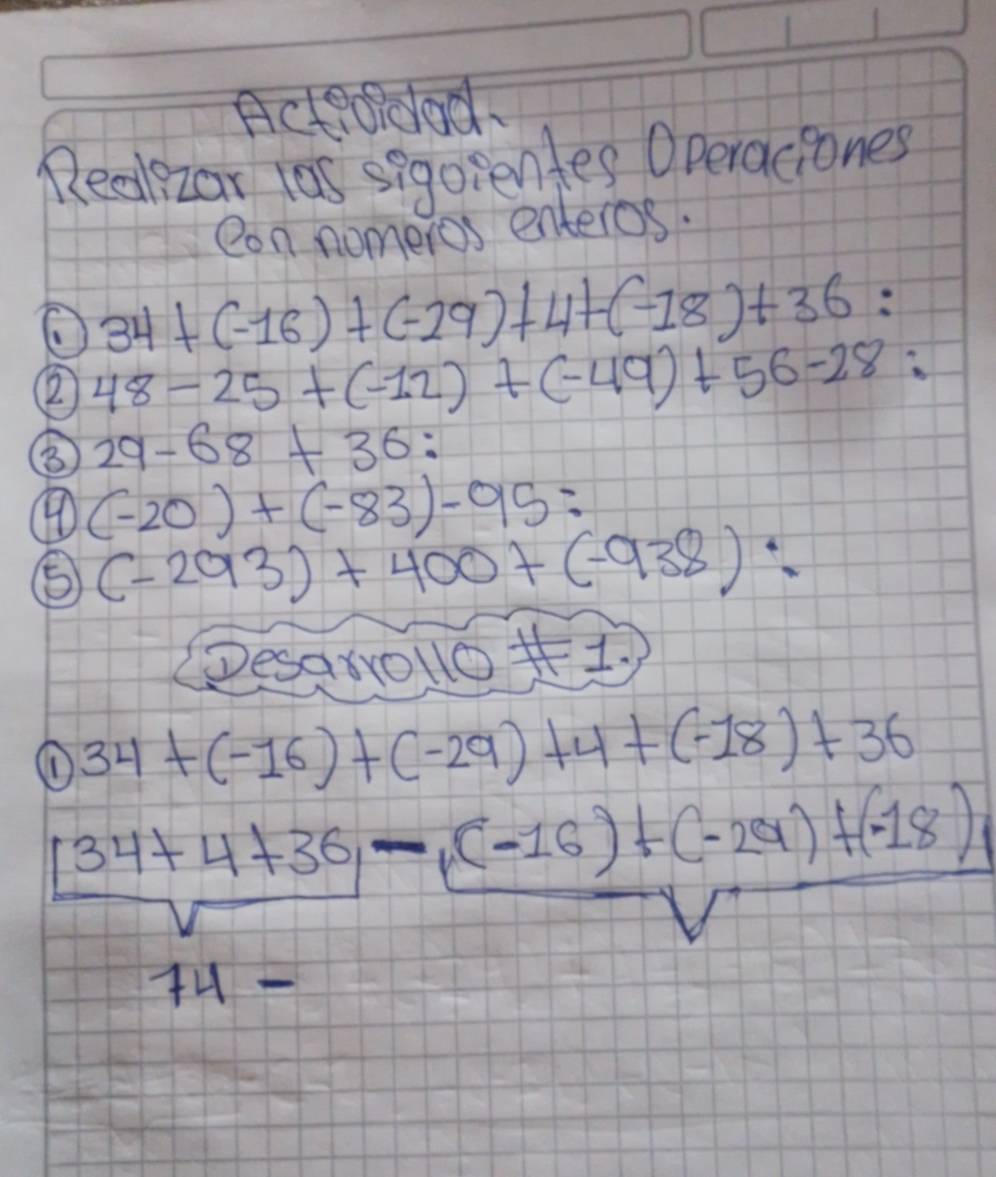 Actividad.
Realizar las siguientes Operaciones
Con numeros enteros.
① 34 + (-16) + (-29) + 4 + (-18) + 36 :
② 48 - 25 + (-12) + (-49) + 56 - 28 :
③ 29 - 68 + 36 :
④ (-20) + (-83) - 95 :
⑤ (-293) + 400 + (-938) :
Desarrollo #1.
① 34 + (-16) + (-29) + 4 + (-18) + 36
34 + 4 + 36 - (-16) + (-29) + (-18)
74 -